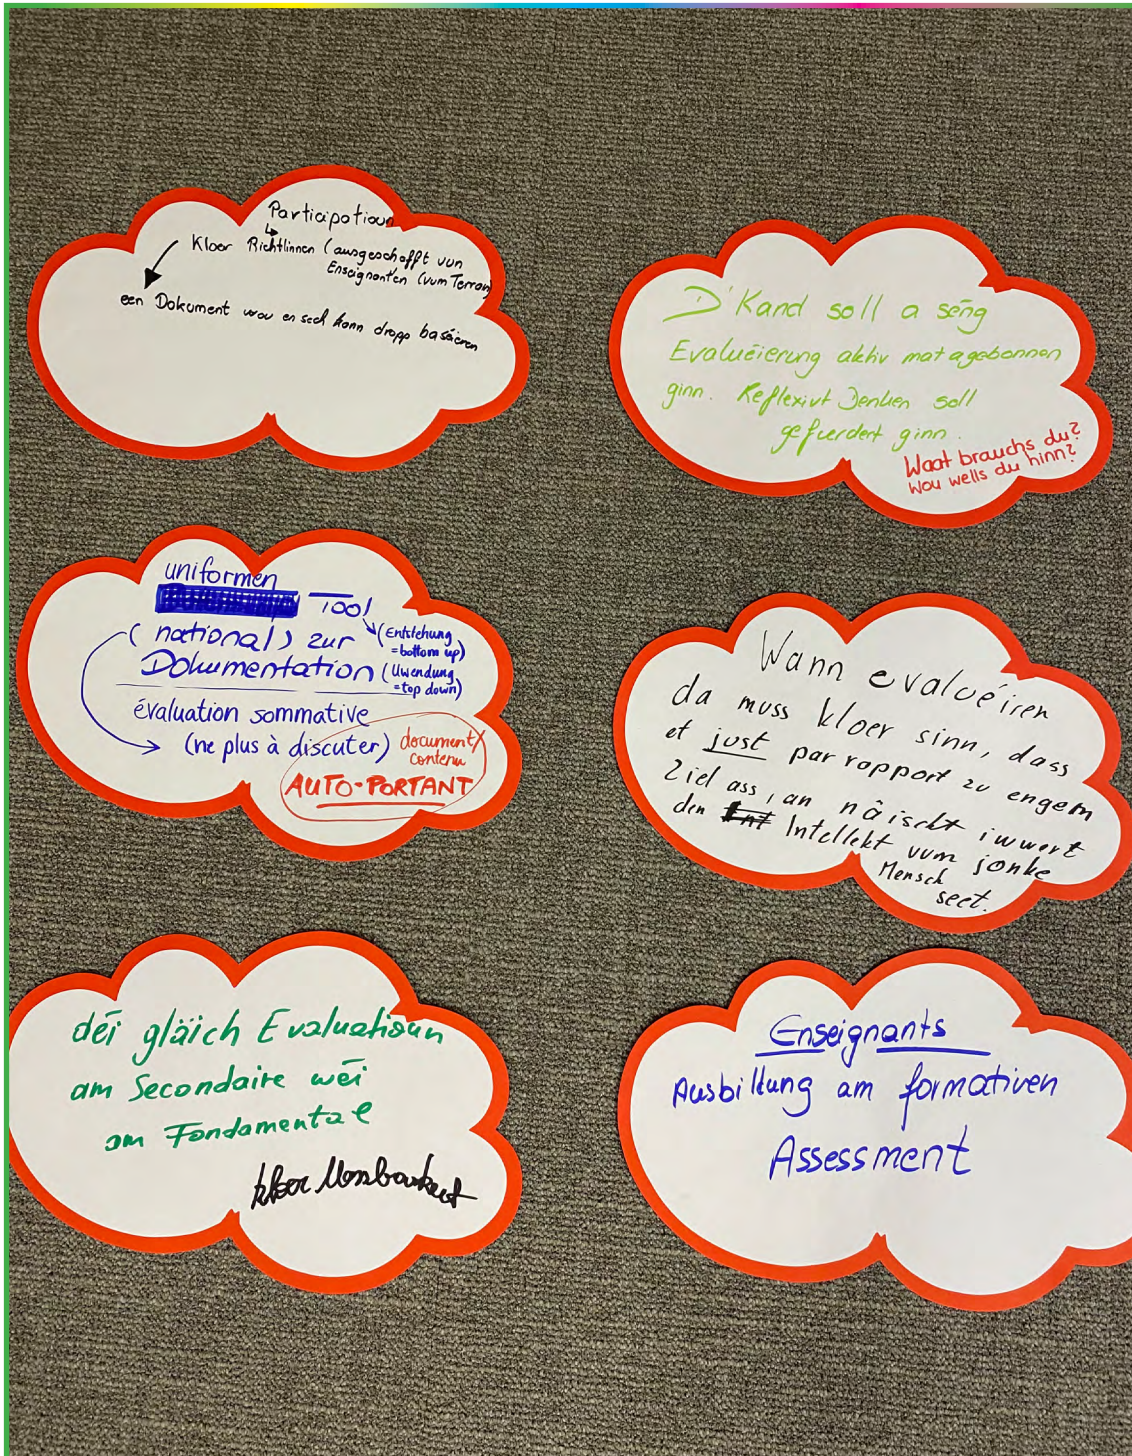 Participatioun
↳
Kloer Richtlinnen (ausgeschafft vun
Enseignanten (vum Terrain)
een Dokument wou en sech kann dropp baséieren
D'Kand soll a séng
Evaluéierung aktiv mat agebonnen
ginn. Reflexivt Denken soll
gefuerdert ginn.
Waat brauchs du?
Wou wells du hinn?
uniformen
Tool
(national) zur (Entstehung
=bottom up)
Dokumentation (Uwendung
=top down)
évaluation sommative
(ne plus à discuter)
document/
contenu
AUTO-PORTANT
Wann evaluéiren
da muss kloer sinn, dass
et just par rapport zu engem
Ziel ass, an näischt iwwert
den Intellekt vum jonke
Mensch
seet.
déi gläich Evaluatioun
am Secondaire wéi
am Fondamental
kloer Moossbarkeet
Enseignants
Ausbildung am formativen
Assessment